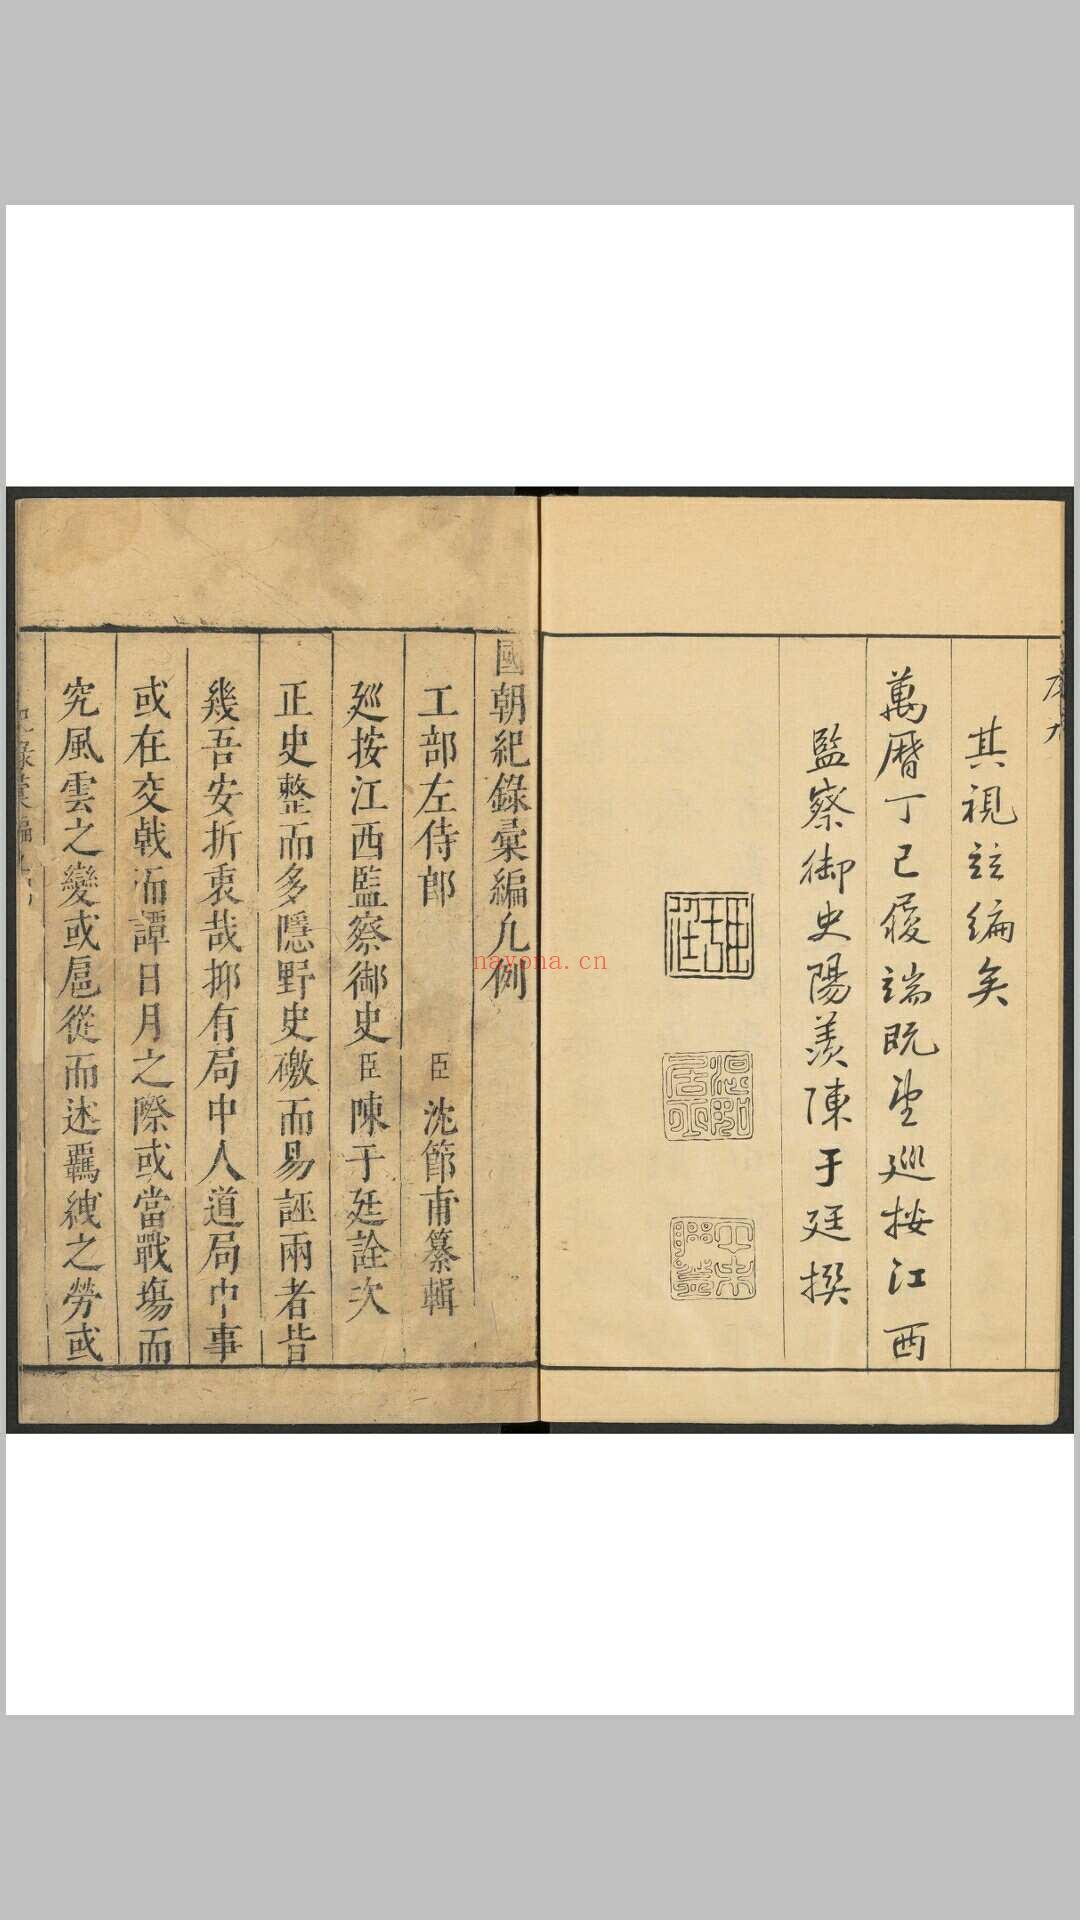 其視茲編矣
萬曆丁巳履端既望廵按江西
監察御史陽羨陳于廷撰
國朝紀錄彙編凡例
工部左侍郎臣沈節甫纂輯
廵按江西監察御史臣陳于廷詮次
正史整而多隱野史礉而易誣兩者皆
幾吾安折衷哉抑有局中人道局中事
或在交戟而譚日月之際或當戰塲而
究風雲之變或扈從而述羈絏之勞或
nayona.cn